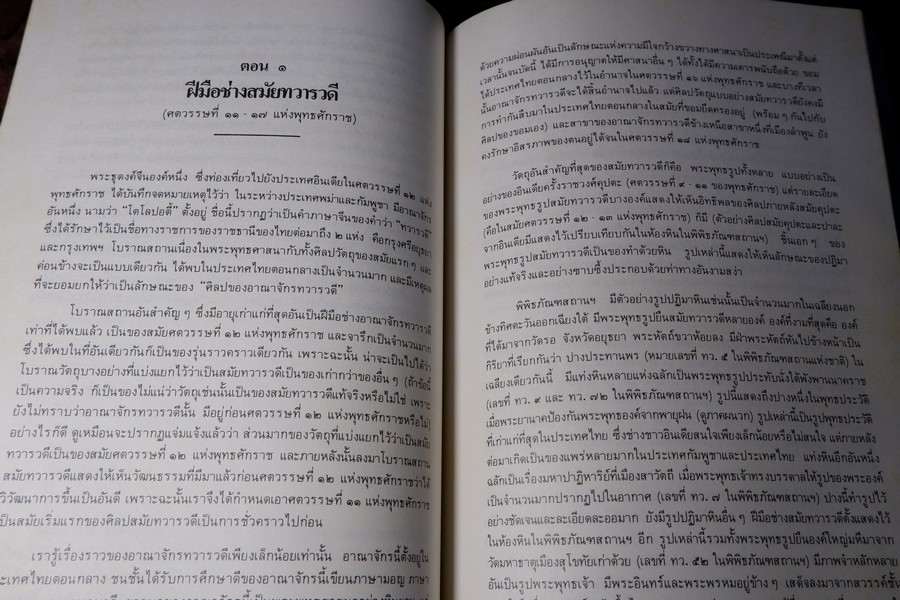 ตอน ๑
ฝีมือช่างสมัยทวารวดี
(ศตวรรษที่ ๑๑ - ๑๗ แห่งพุทธศักราช)
พระธุดงค์จีนองค์หนึ่ง ซึ่งท่องเที่ยวไปยังประเทศอินเดียในศตวรรษที่ ๑๒ แห่ง
พุทธศักราช ได้บันทึกจดหมายเหตุไว้ว่า ในระหว่างประเทศพม่าและกัมพูชา มีอาณาจักร
อันหนึ่ง นามว่า “โตโลปอตี้” ตั้งอยู่ ชื่อนี้ปรากฏว่าเป็นคำภาษาจีนของคำว่า “ทวารวดี”
ซึ่งได้รักษาไว้เป็นชื่อทางราชการของราชธานีของไทยต่อมาถึง ๒ แห่ง คือกรุงศรีอยุธยา
และกรุงเทพฯ โบราณสถานเนื่องในพระพุทธศาสนากับทั้งศิลปวัตถุของสมัยแรก ๆ และ
ค่อนข้างจะเป็นแบบเดียวกัน ได้พบในประเทศไทยตอนกลางเป็นจำนวนมาก และมีเหตุผล
ที่จะยอมยกให้ว่าเป็นลักษณะของ “ศิลปของอาณาจักรทวารวดี”
โบราณสถานอันสำคัญ ๆ ซึ่งมีอายุเก่าแก่ที่สุดอันเป็นฝีมือช่างอาณาจักรทวารวดี
เท่าที่ได้พบแล้ว เป็นของสมัยศตวรรษที่ ๑๒ แห่งพุทธศักราช และจารึกเป็นจำนวนมาก
ซึ่งได้พบในที่อันเดียวกันก็เป็นของรุ่นราวคราวเดียวกัน เพราะฉะนั้น น่าจะเป็นไปได้ว่า
โบราณวัตถุบางอย่างที่แบ่งแยกไว้ว่าเป็นสมัยทวารวดีเป็นของเก่ากว่าของอื่น ๆ (ถ้าข้อนี้
เป็นความจริง ก็เป็นของไม่แน่ว่าวัตถุเช่นนั้นเป็นของสมัยทวารวดีแท้จริงหรือไม่ใช่ เพราะ
ยังไม่ทราบว่าอาณาจักรทวารวดีนั้น มีอยู่ก่อนศตวรรษที่ ๑๒ แห่งพุทธศักราชหรือไม่)
อย่างไรก็ดี ดูเหมือนจะปรากฏแจ่มแจ้งแล้วว่า ส่วนมากของวัตถุที่แบ่งแยกไว้ว่าเป็นสมัย
ทวารวดีเป็นของสมัยศตวรรษที่ ๑๒ แห่งพุทธศักราช และภายหลังนั้นลงมาโบราณสถาน
สมัยทวารวดีแสดงให้เห็นวัฒนธรรมที่มีมาแล้วก่อนศตวรรษที่ ๑๒ แห่งพุทธศักราชว่าได้
วิวัฒนาการขึ้นเป็นอันดี เพราะฉะนั้นเราจึงได้กำหนดเอาศตวรรษที่ ๑๑ แห่งพุทธศักราช
เป็นสมัยเริ่มแรกของศิลปสมัยทวารวดีเป็นการชั่วคราวไปก่อน
เรารู้เรื่องราวของอาณาจักรทวารวดีเพียงเล็กน้อยเท่านั้น อาณาจักรนี้ตั้งอยู่ใน
ประเทศไทยตอนกลาง ชนชั้นได้รับการศึกษาดีของอาณาจักรนี้เขียนภาษามอญ ภาษา
ด้วยความผ่อนผันอันเป็นลักษณะแห่งความมีใจกว้างขวางทางศาสนาเป็นประเพณีมาตั้งแต่
เวลานั้นจนบัดนี้ ได้มีการอนุญาตให้มีศาสนาอื่น ๆ ได้ทั้งได้มีความเคารพนับถือด้วย ขอม
ได้ประเทศไทยตอนกลางไว้ในอำนาจในศตวรรษที่ ๑๖ แห่งพุทธศักราช และบางทีเวลา
นั้นอาณาจักรทวารวดีจะได้สิ้นอำนาจไปแล้ว แต่ศิลปวัตถุแบบอย่างสมัยทวารวดียังคงมี
การทำกันสืบมาในประเทศไทยตอนกลางในสมัยที่ขอมยึดครองอยู่ (พร้อม ๆ กันไปกับ
ศิลปของขอมเอง) และสาขาของอาณาจักรทวารวดีข้างเหนือสาขาหนึ่งที่เมืองลำพูน ยัง
คงรักษาอิสรภาพของตนอยู่ได้จนในศตวรรษที่ ๑๘ แห่งพุทธศักราช
วัตถุอันสำคัญที่สุดของสมัยทวารวดีก็คือ พระพุทธรูปทั้งหลาย แบบอย่างเป็น
อย่างของอินเดียครั้งราชวงศ์คุปตะ (ศตวรรษที่ ๙ - ๑๑ ของพุทธศักราช) แต่รายละเอียด
ของพระพุทธรูปสมัยทวารวดีบางองค์แสดงให้เห็นอิทธิพลของศิลปภายหลังสมัยคุปตะ
(คือในสมัยศตวรรษที่ ๑๒ - ๑๓ แห่งพุทธศักราช) ก็มี (ตัวอย่างศิลปสมัยคุปตะและปาละ
จากอินเดียมีแสดงไว้เปรียบเทียบกันในห้องหินในพิพิธภัณฑสถานฯ) ชิ้นเอก ๆ ของ
พระพุทธรูปสมัยทวารวดีเป็นของทำด้วยหิน รูปเหล่านี้แสดงให้เห็นลักษณะของปฏิมา
อย่างแท้จริงและอย่างซาบซึ้งประกอบด้วยท่าทางอันงามสง่า
พิพิธภัณฑสถานฯ มีตัวอย่างรูปปฏิมาหินเช่นนั้นเป็นจำนวนมากในเฉลียงนอก
ข้างทิศตะวันออกเฉียงใต้ มีพระพุทธรูปยืนสมัยทวารวดีหลายองค์ องค์ที่งามที่สุดคือ องค์
ที่ได้มาจากวัดรอ จังหวัดอยุธยา พระหัตถ์ขวาห้อยลง มีฝ่าพระหัตถ์หันไปข้างหน้าเป็น
กิริยาที่เรียกกันว่า ปางประทานพร (หมายเลขที่ ทว. ๕ ในพิพิธภัณฑสถานแห่งชาติ) ใน
เฉลียงเดียวกันนี้ มีแท่งหินหลายแห่งฉลักเป็นพระพุทธรูปประทับนั่งใต้พังพานนาคราช
(เลขที่ ทว. ๙ และ ทว. ๗๒ ในพิพิธภัณฑสถานฯ) รูปนี้แสดงถึงปางหนึ่งในพุทธประวัติ
เมื่อพระยานาคป้องกันพระพุทธองค์จากพายุฝน (ดูภาคผนวก) รูปเหล่านี้เป็นรูปพุทธประวัติ
ที่เก่าแก่ที่สุดในประเทศไทย ซึ่งช่างชาวอินเดียสนใจเพียงเล็กน้อยหรือไม่สนใจ แต่ภายหลัง
ต่อมาเกิดเป็นของแพร่หลายมากในประเทศกัมพูชาและประเทศไทย แท่งหินอีกอันหนึ่ง
ฉลักเป็นเรื่องมหาปาฏิหาริย์ที่เมืองสาวัตถี เมื่อพระพุทธเจ้าทรงบรรดาลให้รูปของพระองค์
เป็นจำนวนมากปรากฏไปในอากาศ (เลขที่ ทว. ๗ ในพิพิธภัณฑสถานฯ) ปางนี้ทำรูปไว้
อย่างชัดเจนและละเอียดละออมาก ยังมีรูปปฏิมาหินอื่น ๆ ฝีมือช่างสมัยทวารวดีตั้งแสดงไว้
ในห้องหินในพิพิธภัณฑสถานฯ อีก รูปเหล่านี้รวมทั้งพระพุทธรูปยืนองค์ใหญ่บหีมาจาก
วัดมหาธาตุเมืองสุโขทัยเก่าด้วย (เลขที่ ทว. ๕๒ ในพิพิธภัณฑสถานฯ) มีภาพจำหลักหลาย
อันเป็นรูปพระพุทธเจ้า มีพระอินทร์และพระพรหมอยู่ข้าง ๆ เสด็จลงมาจากสวรรค์ชั้น